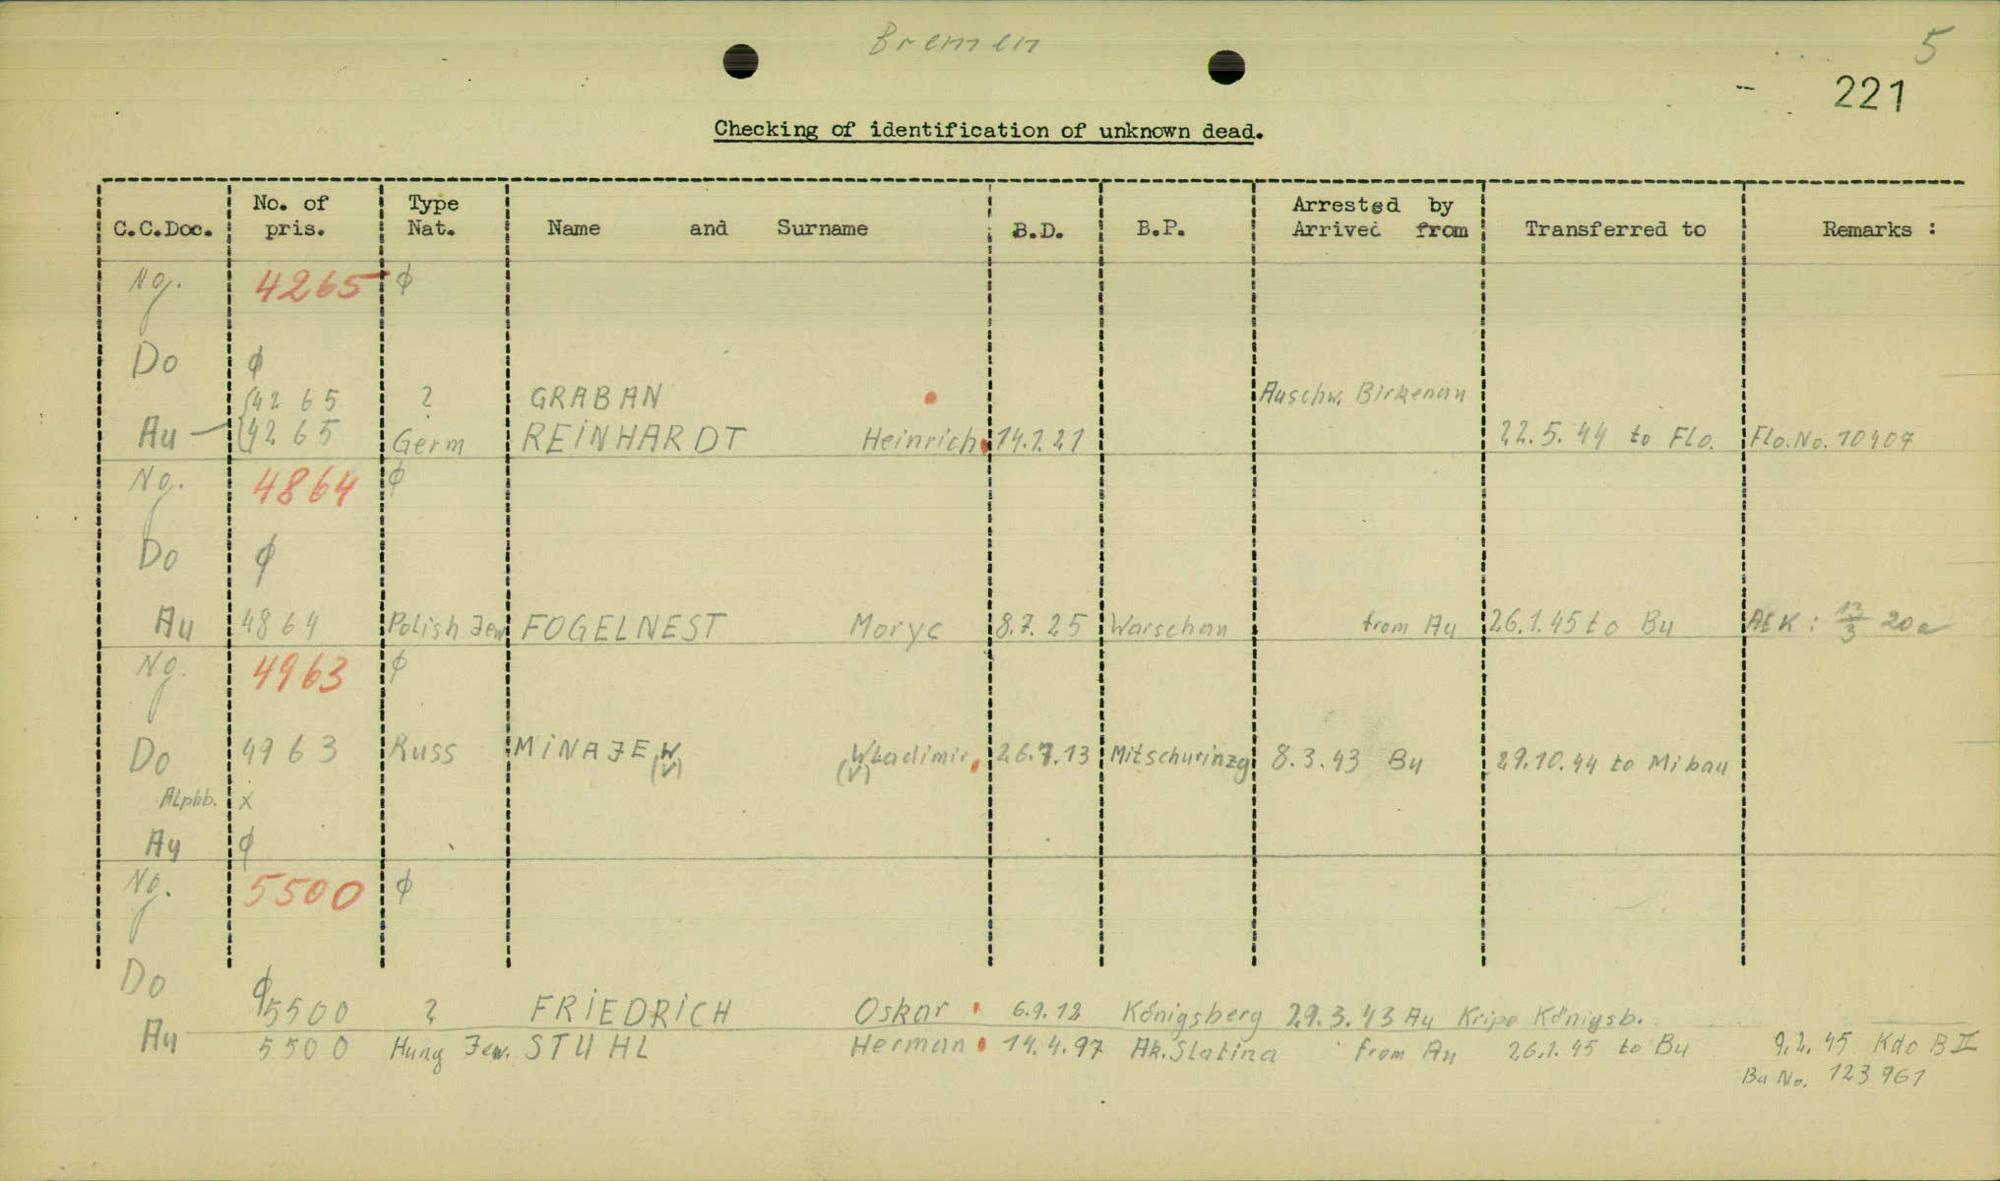 Bremen
5
221
Checking of identification of unknown dead.
C.C.Doc. No. of pris. Type Nat. Name and Surname B.D. B.P. Arrested by Arrived from Transferred to Remarks :
Ng. 4265 ϕ
Do ϕ
4265 ? GRABAN Auschw. Birkenau
Au 4265 Germ REINHARDT Heinrich 22.5.44 to Flo. Flo.No. 10407
Ng. 4864 ϕ
Do ϕ
Au 4864 Polish Jew FOGELNEST Moryc 8.7.25 Warschau from Au 26.1.45 to Bu
Ng. 4963 ϕ
Do 4963 Russ MINAJEW (V) (V) Wladimir 26.7.13 8.3.43 Bu 29.10.44 to Mibau
Alphb. x
Au ϕ
Ng. 5500 ϕ
Do ϕ
5500 ? FRIEDRICH Oskar Königsberg 29.3.43 Au Kripo Königsb.
Au 5500 Hung Jew. STUHL Herman 14.4.97 Ak.Slatina from Au 26.1.45 to Bu Kdo B II
Bu No. 123961